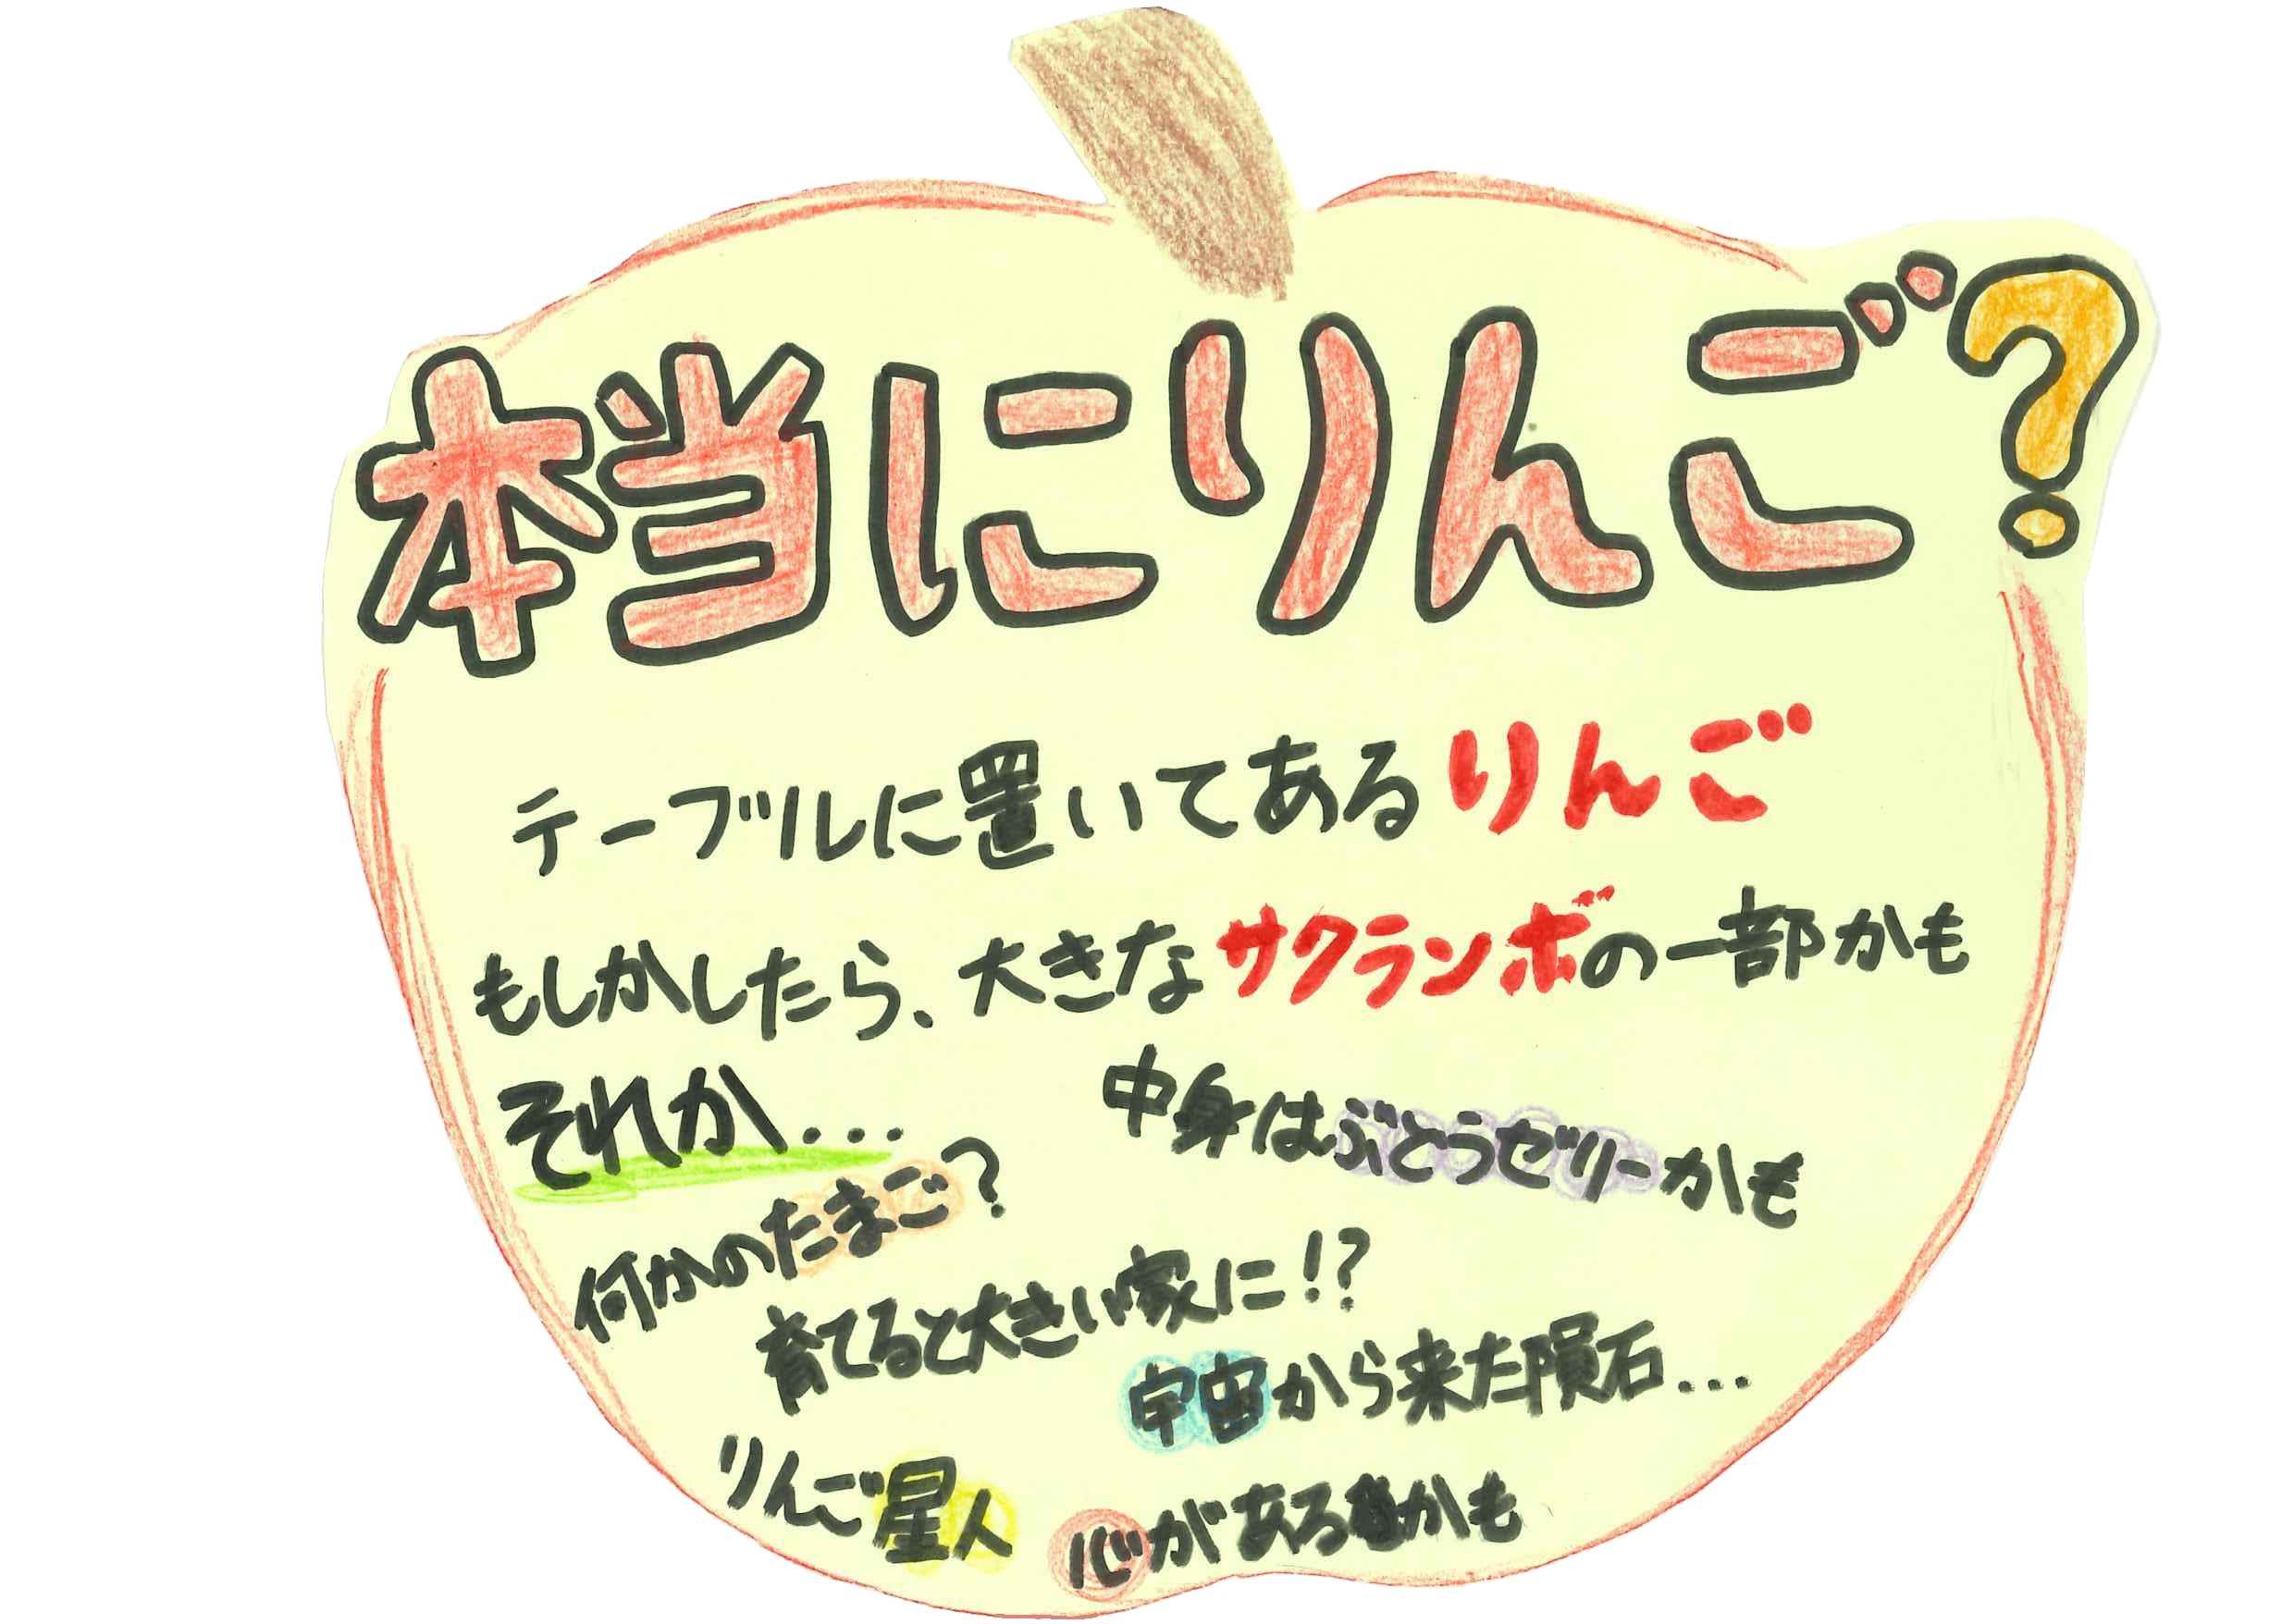 本当にりんご?
テーブルに置いてあるりんご
もしかしたら、大きなサクランボの一部かも
それか...
中身はぶどうゼリーかも
何かのたまご?
育てると大きい家に!?
宇宙から来た隕石...
りんご星人
心があるかも